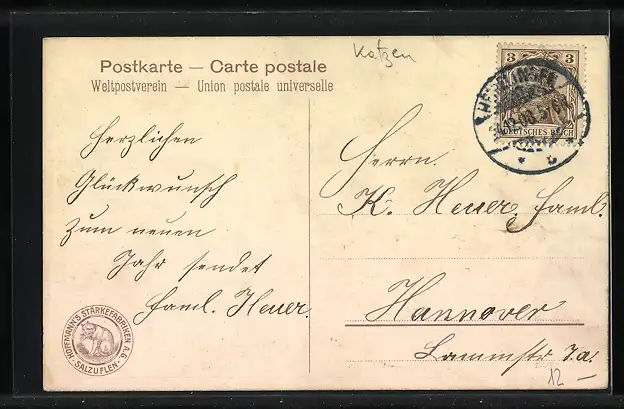 Katzen
Postkarte — Carte postale
Weltpostverein — Union postale universelle
3 3
12.06.
DEUTSCHES REICH
Herzlichen
Glückwunsch
zum neuen
Jahr sendet
Faml. Heuer.
Herrn.
K. Heuer, Faml.
Hannover
Lammstr 7a.
HOFFMANN'S STÄRKEFABRIKEN A.G.
SALZUFLEN
12 —